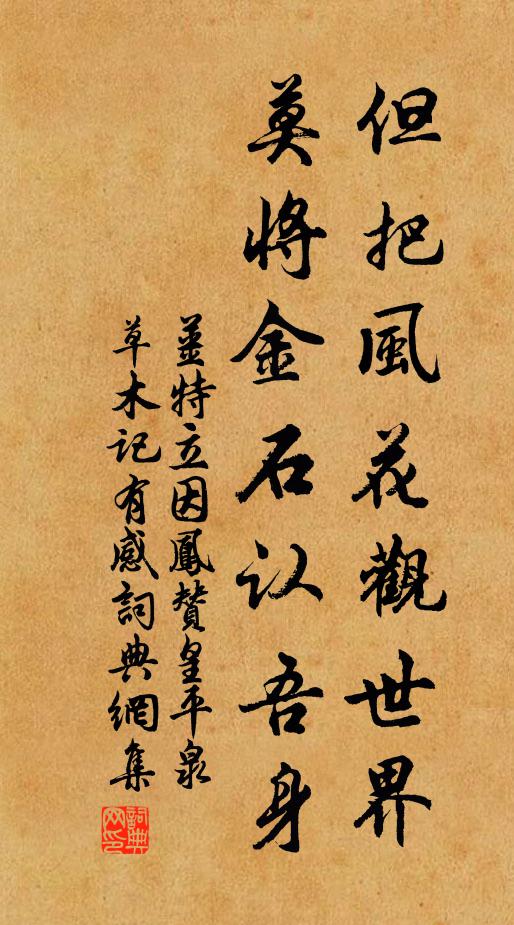 但把風花觀世界
莫將金石认吾身
薑特立因鳳贊皇平泉
草木记有感詞典網集
詞典网印